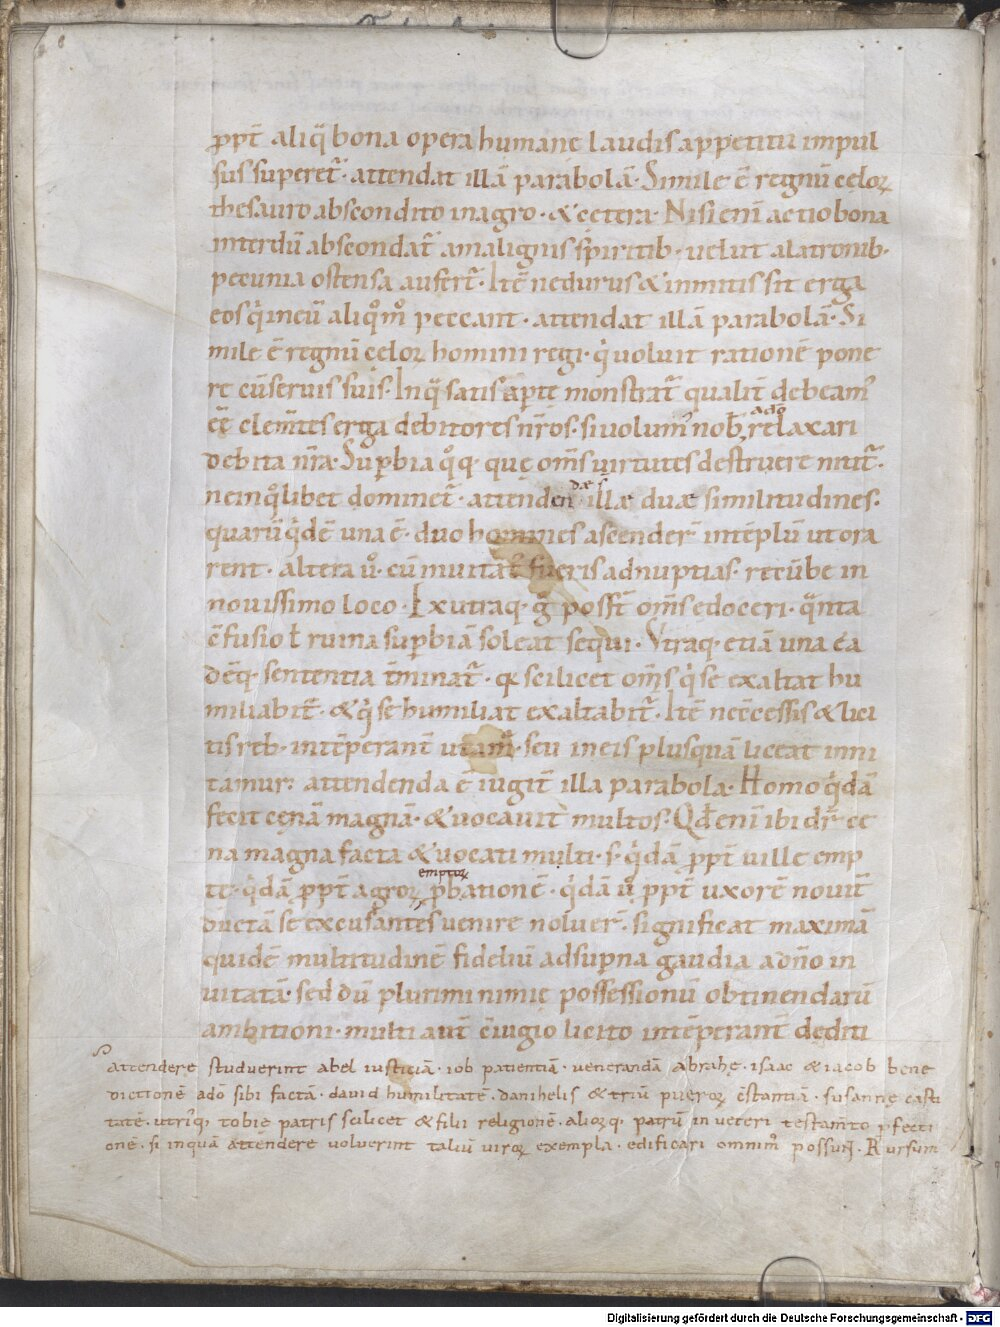 ꝓpt̄ aliq̄ bona opera humanę laudis appetitu impul
sus superet᷑· attendat illā parabolā· Simile ē regnū celoꝝ
thesauro abscondito in agro· & cetera· Nisi enī actio bona
interdū abscondat᷑ a malignis sp̄iritib· velut a latronib·
pecunia ostensa aufert᷑· Itē ne durus & inmitis sit erga
eos qͥ in eū aliqͦmͦ peccant· attendat illā parabolā· Si
mile ē regnū celoꝝ homini regi· qͥ voluit rationē pone
re cū servis suis· In q̄ satis apte monstrat᷑ qualit̄ debeam᷒
eę̄ clem̄tes erga debitores nr̄os· si volum᷒ nob̄ a dō relaxari
debita nr̄a· Suꝑbia qͦq· quę om̄s virtutes destruere nitit᷑·
ne in qͦlibet dominet᷑· attendendæ s̄ illæ duæ similitudines·
quarū qͥdē una ē· duo homines ascender̄ in tēplū ut ora
rent· altera v̊· cū invitat᷒ fueris ad nuptias· recūbe in
novissimo loco· Ex utraq· g̊ posst̄ om̄s edoceri· q̄nta
c̄fusio ł ruina suꝑbiā soleat sequi· Utraq· etiā una ea
dēq· sententia t̄minat᷑· qꝛ scilicet om̄s qͥ se exaltat hu
miliabit᷑· & qͥ se humiliat exaltabit᷑· Itē ne c̄cessis & lici
tis reb· intēperant̄ utam᷒· seu in eis plusquā liceat inni
tamur· attendenda ē iugit̄ illa parabola· Homo qͥdā
fecit cęnā magnā· & vocavit multos· Qd̄ enī ibi dr̄ ce
na magna facta & vocati multi· s· qͥdā ꝓpt̄ ville emp
tę· qͥdā ꝓpt̄ agroꝝ emptoꝝ ꝓbationē· qͥdā v̊ ꝓpt̄ uxorē novit̄
ductā se excusantes venire noluer̄· significat maximā
quidē multitudinē fideliū ad suꝑna gaudia a dn̄o in
vitatā· sed dū plurimi nimię possessionū obtinendarū
ambitioni· multi aut̄ c̄iugio licito intēperant̄ dęditi
attendere studuerint abel iusticiā· iob patientiā· venerandā abrahę· isaac & iacob bene
dictionē a dō sibi factā· david humilitatē· danihelis & triū pueroꝝ c̄stantiā· susannę casti
tatē· utriq· tobię patris scilicet & filii religionē· alioꝝq· patrū in veteri testam̄to ꝑfecti
onē· si inquā attendere voluerint taliū viroꝝ exempla· edificari omnim̊ possunt· Rursum
Digitalisierung gefördert durch die Deutsche Forschungsgemeinschaft - DFG